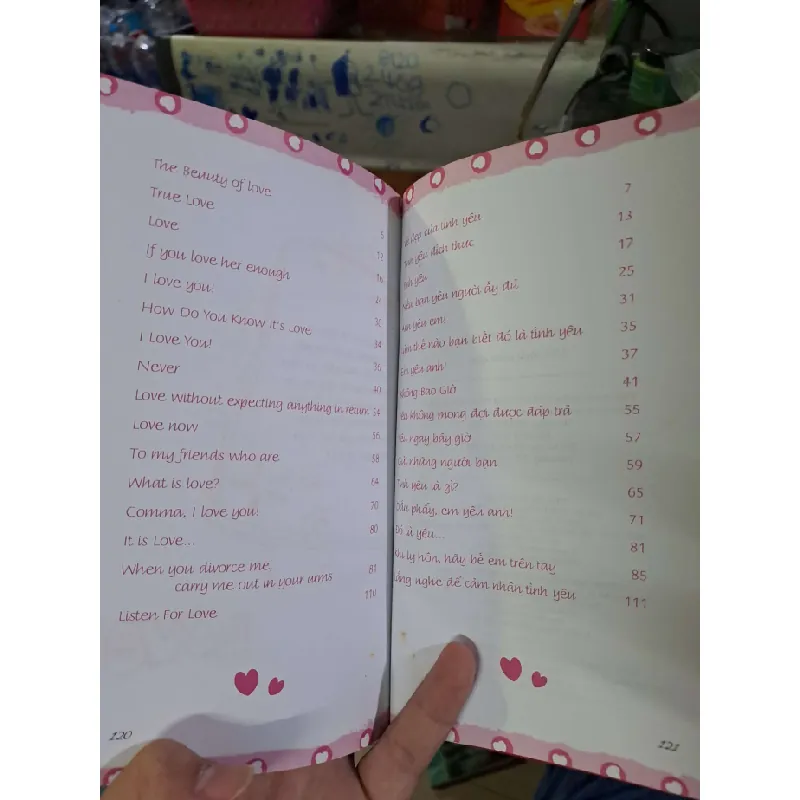 The Beauty of love
True Love
5
Love
12
If you love her enough
16
I love you.
How Do You Know it's Love
30
I Love You!
34
Never
36
Love without expecting anything in return
40
Love now
To my friends who are
What is love?
Comma, I love you!
70
It is Love...
80
When you divorce me,
carry me out in your arms
Listen For Love
110
120
đẹp của tình yêu
7
yêu đích thực
13
yêu
17
Nếu bạn yêu người ấy đủ
25
Anh yêu em!
31
thế nào bạn biết đó là tình yêu
35
Em yêu anh!
37
Không Bao Giờ
41
không mong đợi được đáp trả
55
ngay bây giờ
57
những người bạn
59
Tình yêu là gì?
65
Dấu phẩy, em yêu anh!
71
Đó là yêu...
81
Khi ly hôn, hãy bế em trên tay
85
nghe để cảm nhận tình yêu
111
121